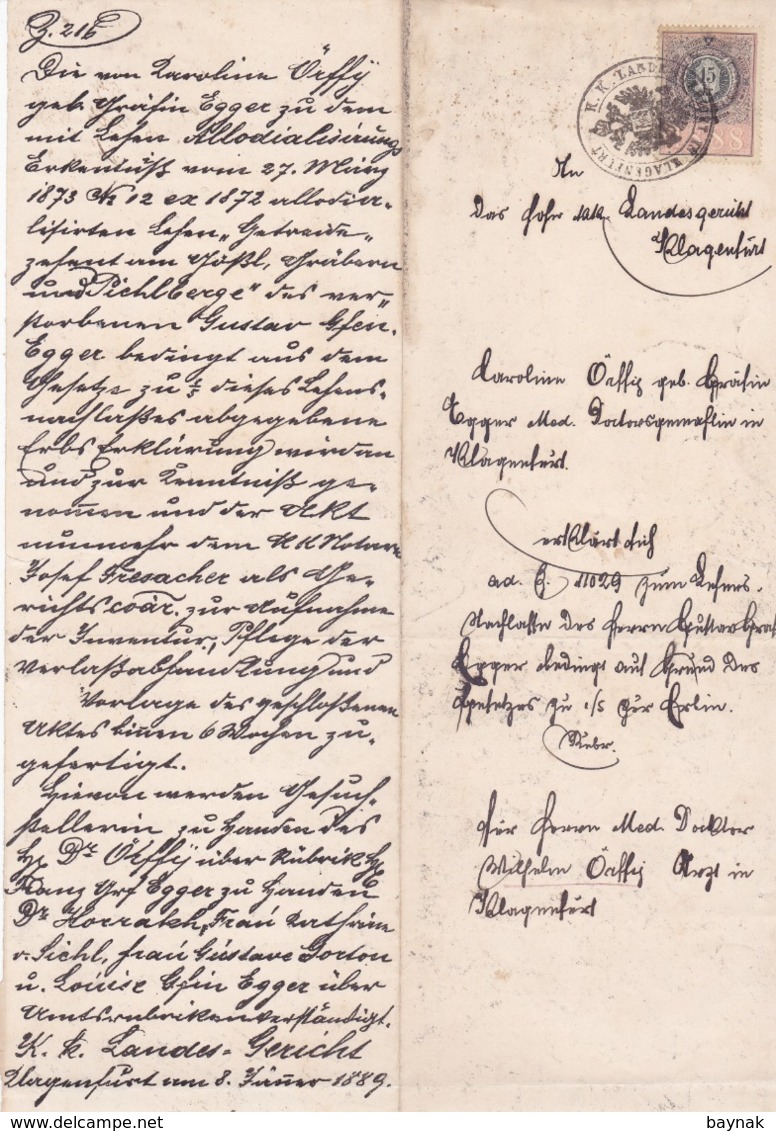 Z. 216
Die von Karoline Örffÿ
geb. Gräfin Egger zu dem
mit Lehen Allodialisirungs
Erkentniß vom 27. März
1873 No 12 ex 1872 allodia-
lisirten Lehen „Getreide„
zehent am Gößl, Gräbern
und Pichlberge" des ver„
storbenen Gustav Gfen.
Egger bedingt aus dem
Gesetze zu 1/5 dieses Lehens-
nachlaßes abgegebene
Erbs Erklärung wird an
und zur Kenntniß ge-
nommen und der Akt
nunmehr dem KK Notar
Josef Fresacher als Ge-
richtscoär. zur Aufnahme
der Inventur, Pflege der
Verlaßabhandlung und
Vorlage des geschloßenen
Aktes binnen 6 Wochen zu-
gefertigt.
Hievon werden Gesuch-
stellerin zu Handen des
H. Dr Örffÿ über Rubrik H.
Franz Grf Egger zu Handen
Dr Horrakh, Frau Kathrine
v. Pichl, Frau Gustave Gorton
u. Louise Gfin Egger über
Amtsrubriken verständigt.
K. k. Landes-Gericht
Klagenfurt am 8. Jänner 1889.
K.K. LANDESGERICHT IN KLAGENFURT
15
88
An
das hohe k.k. Landesgericht
Klagenfurt
Karoline Örffy geb. Gräfin
Egger Med. Doctorsgemahlin in
Klagenfurt.
erklärt sich
ad. Z. 11029 zum Lehens-
Nachlasse des Herrn Gustav Graf
Egger bedingt auf Grund des
Gesetzes zu 1/5 zur Erbin.
Rubr.
Für Herrn Med. Docktor
Wilhelm Örffy Arzt in
Klagenfurt
baynak